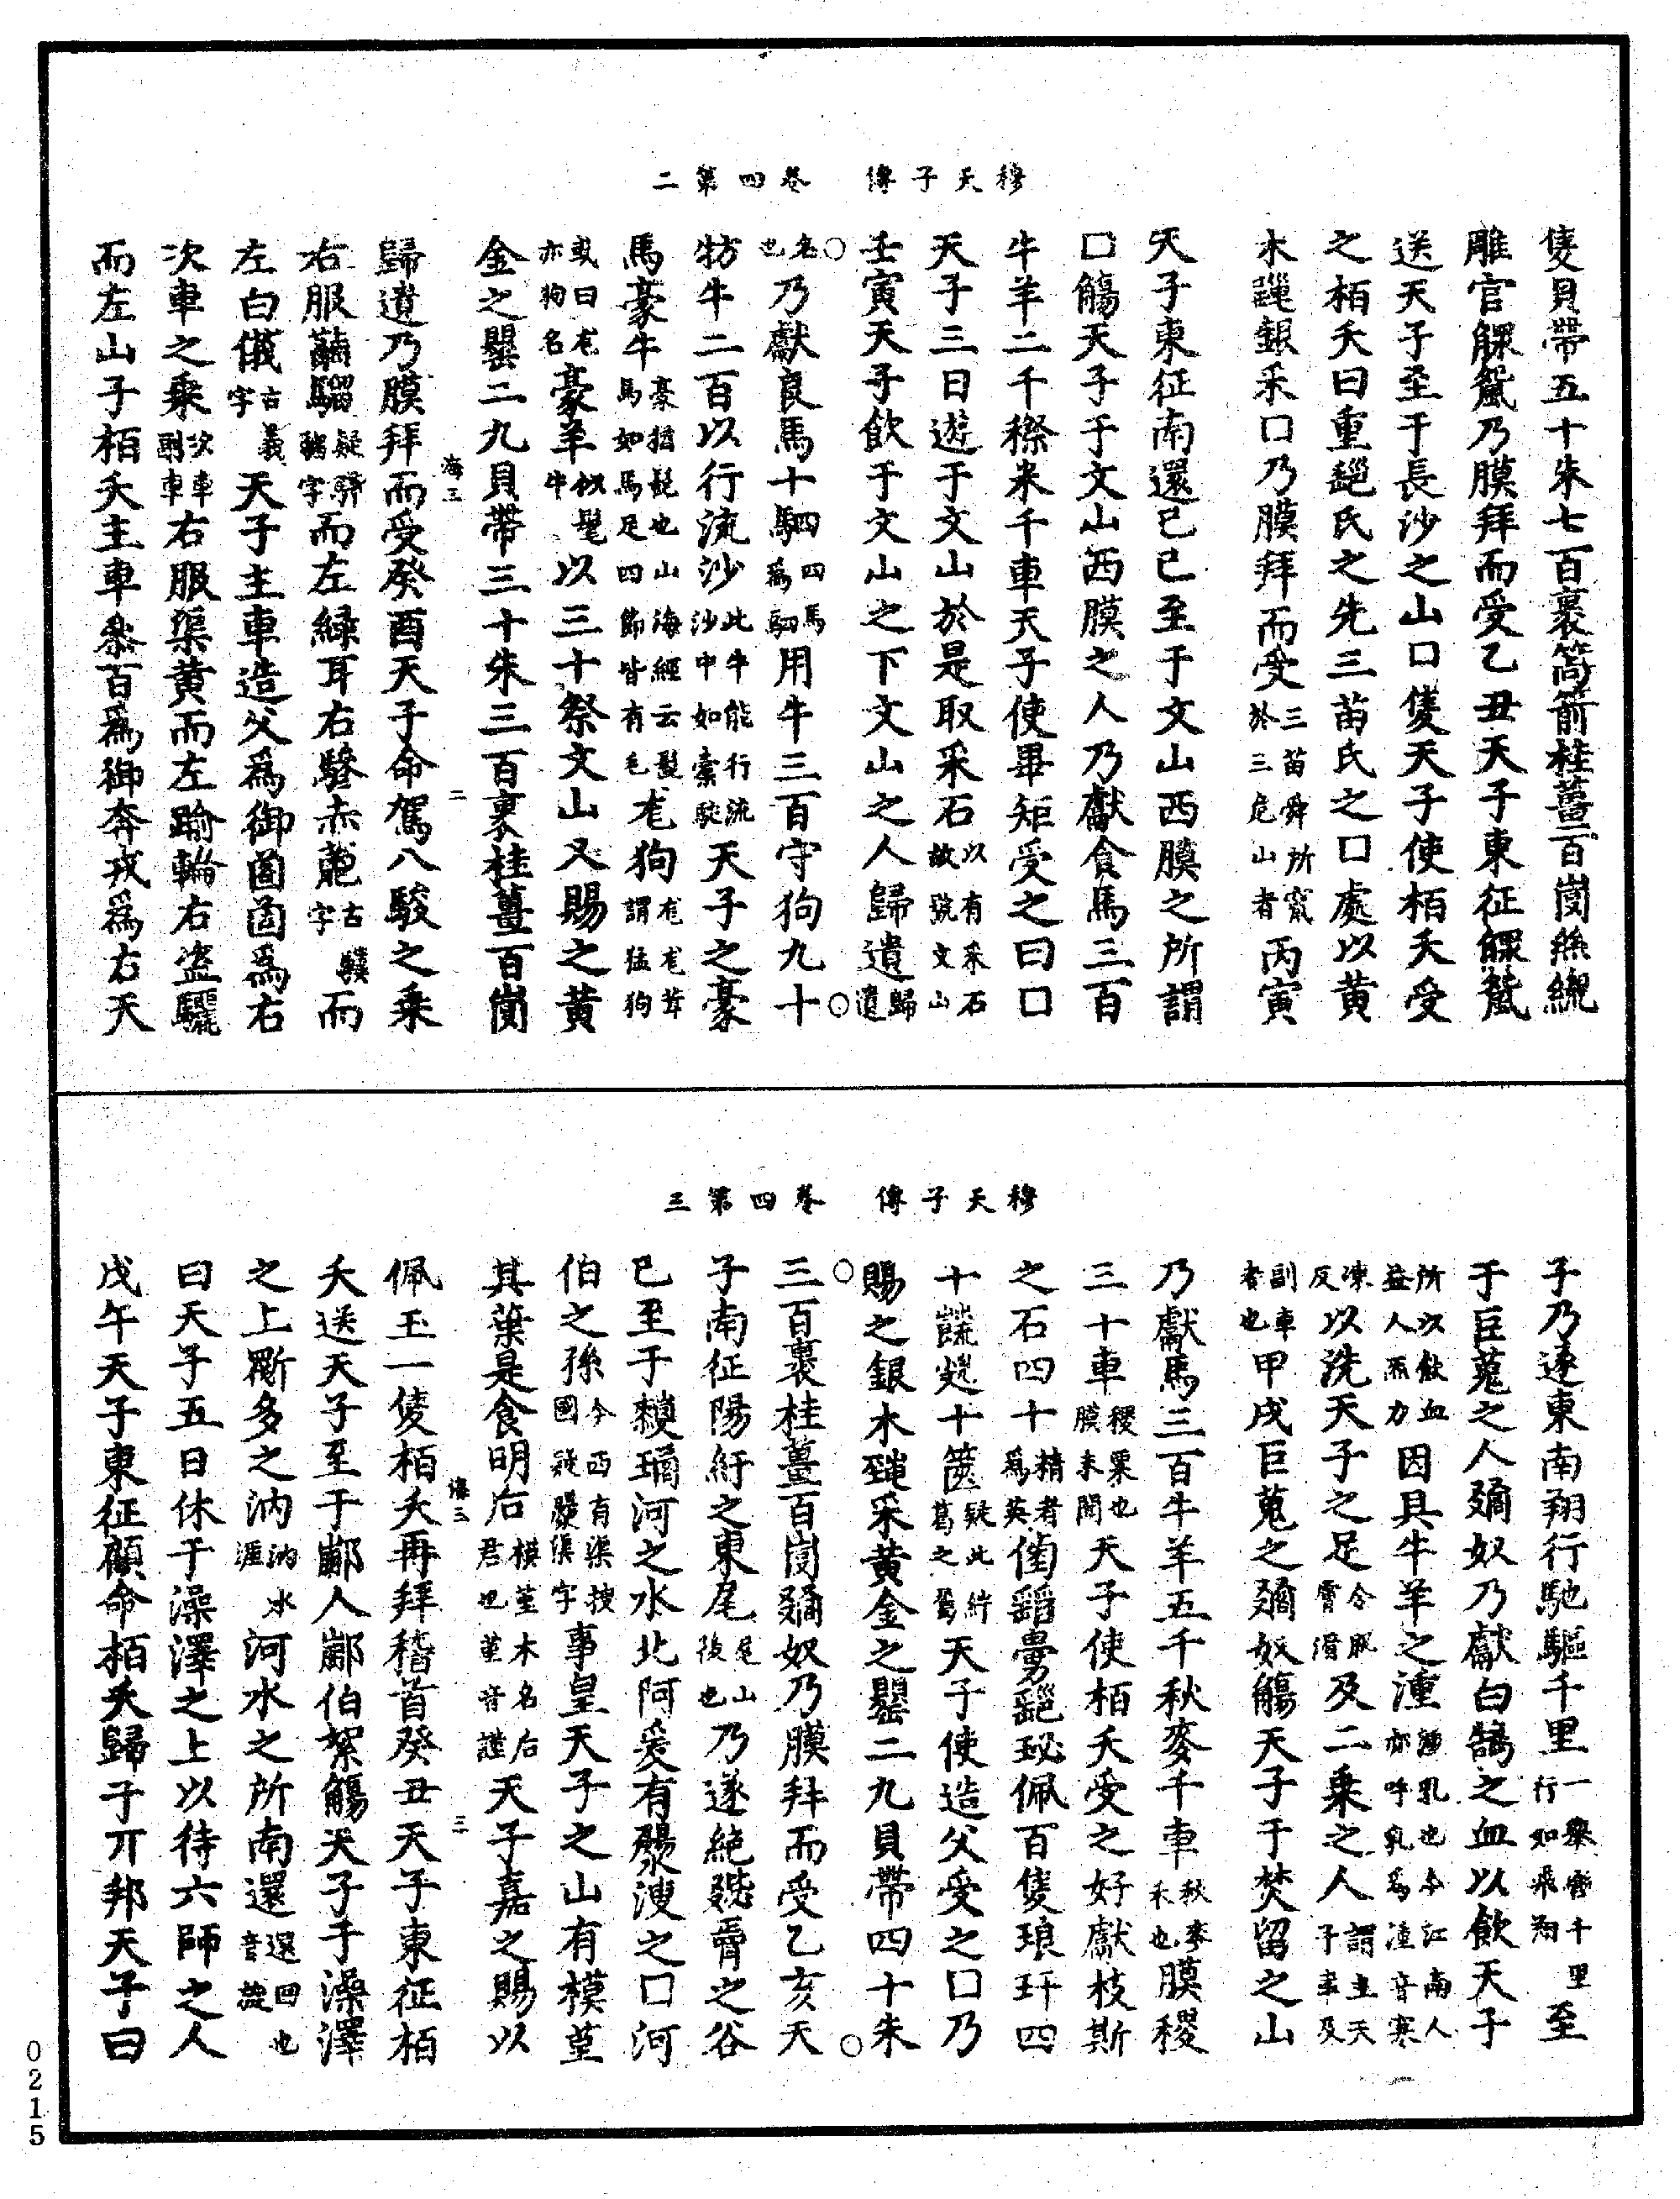 穆天子傳　卷四第二
隻貝帶五十朱七百裹箭桂薑百𡇈絲繝
雕官䚢䰯乃膜拜而受乙丑天子東征䚢䰯
送天子至于長沙之山口隻天子使栢夭受
之栢夭曰重䣙氏之先三苗氏之口處以黃
木銀采口乃膜拜而受三苗舜所竄於三危山者丙寅
天子東征南還己巳至于文山西膜之所謂
口觴天子于文山西膜之人乃獻食馬三百
牛羊二千穄米千車天子使畢矩受之曰口
天子三日遊于文山於是取采石以有采石故號文山
壬寅天子飲于文山之下文山之人歸遺歸遺
名也乃獻良馬十駟四馬爲駟用牛三百守狗九十
牥牛二百以行流沙此牛能行流沙中如橐駝天子之豪
馬豪牛豪猶髭也山海經云髭馬如馬足四節皆有毛尨狗尨尨茸謂猛狗
或曰尨亦狗名豪羊似髦牛以三十祭文山又賜之黃
金之罌二九貝帶三十朱三百裹桂薑百𡇈
歸遺乃膜拜而受癸酉天子命駕八駿之乘
右服驊騮疑驊騮字而左綠耳右驂赤䕀古驥字而
左白儀古義字天子主車造父爲御𦣞𦣞爲右
次車之乘次車副車右服渠黃而左踰輪右盜驪
而左山子栢夭主車參百爲御奔戎爲右天
海三
二
穆天子傳　卷四第三
子乃遂東南翔行馳驅千里一舉轡千里行如飛翔至
于巨蒐之人㺯奴乃獻白鵠之血以飲天子
所以飲血益人炁力因具牛羊之湩湩乳也今江南人亦呼乳爲湩音寒
凍反以洗天子之足令肌膚滑及二乘之人謂主天子車及
訓車者也甲戌巨蒐之㺯奴觴天子于焚留之山
乃獻馬三百牛羊五千秋麥千車秋麥禾也膜稷
三十車稷粟也膜未聞天子使栢夭受之好獻枝斯
之石四十精者爲英佩百隻琅玕四
十十篋疑此紵葛之屬天子使造父受之口乃
賜之銀木采黃金之罌二九貝帶四十朱
三百裹桂薑百𡇈㺯奴乃膜拜而受乙亥天
子南征陽紆之東尾尾山後也乃遂絕之谷
已至于河之水北阿爰有溲之口河
伯之孫今西有渠搜國疑渠字事皇天子之山有模堇
其葉是食明后模堇木名后君也堇音謹天子嘉之賜以
佩玉一隻栢夭再拜稽首癸丑天子東征栢
夭送天子至于䣙人䣙伯絮觴天子于澡澤
之上多之汭汭水涯河水之所南還還回也音旋
曰天子五日休于澡澤之上以待六師之人
戊午天子東征顧命栢夭歸于丌邦天子曰
海三
三
0215